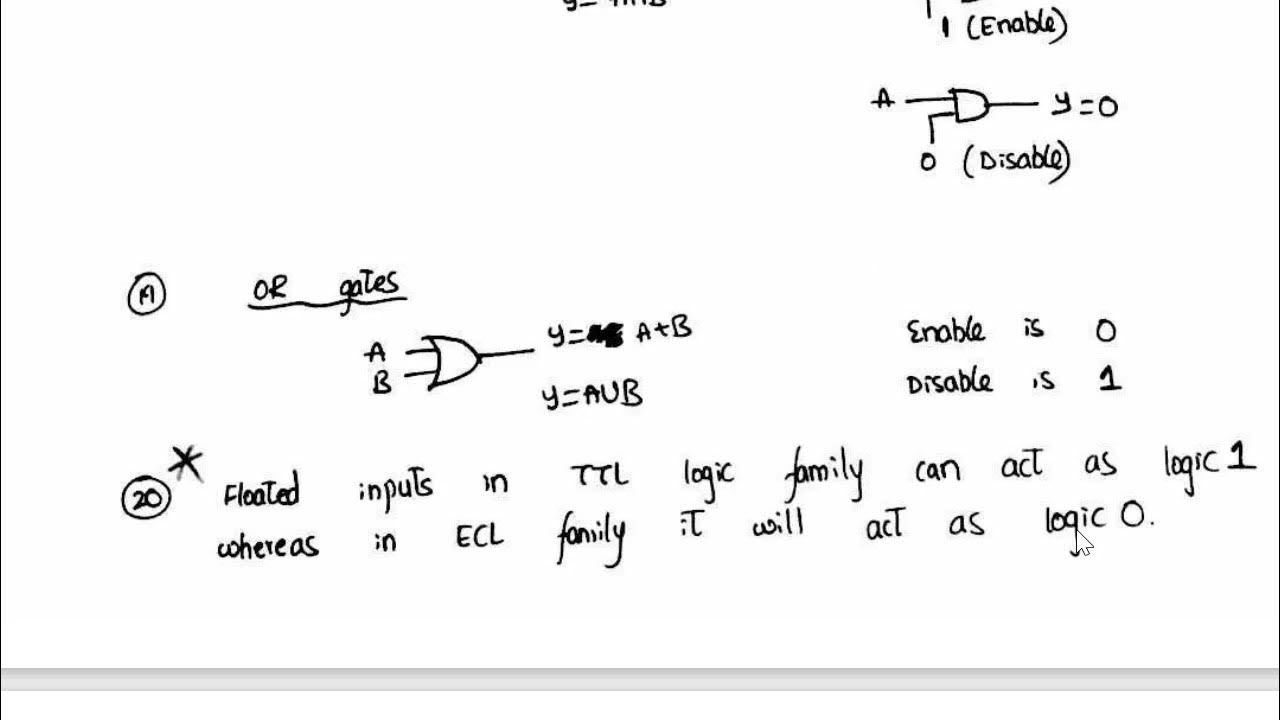 1 (Enable)
A y=0
0 (Disable)
OR gates
A y= A+B
B
y=AUB
Enable is 0
Disable is 1
20 * Floated inputs in TTL logic family can act as logic 1
whereas in ECL family it will act as logic 0.